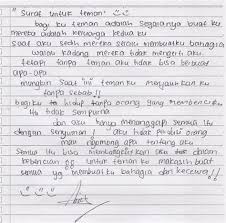 " Surat untuk teman "
bagi ku teman adalah segalanya buat ku
mereka adalah keluarga kedua ku
saat aku sedih mereka selalu membuatku bahagia
walau kadang mereka tidak mengerti aku.
tetapi tanpa teman aku tidak bisa berbuat
apa-apa
mungkin saat ini teman ku menjauhkan ku
tanpa sebab!!
bagi ku hidup tanpa orang yang membenci ku
itu tidak sempurna
dan aku hanya menanggapi semua itu
dengan senyuman! aku tidak perduli orang
mau ngomong apa tentang aku
semua itu bisa membangkitkan aku dari
kebencian untuk teman ku makasih buat
semua yg membuatku bahagia dan kecewa!!